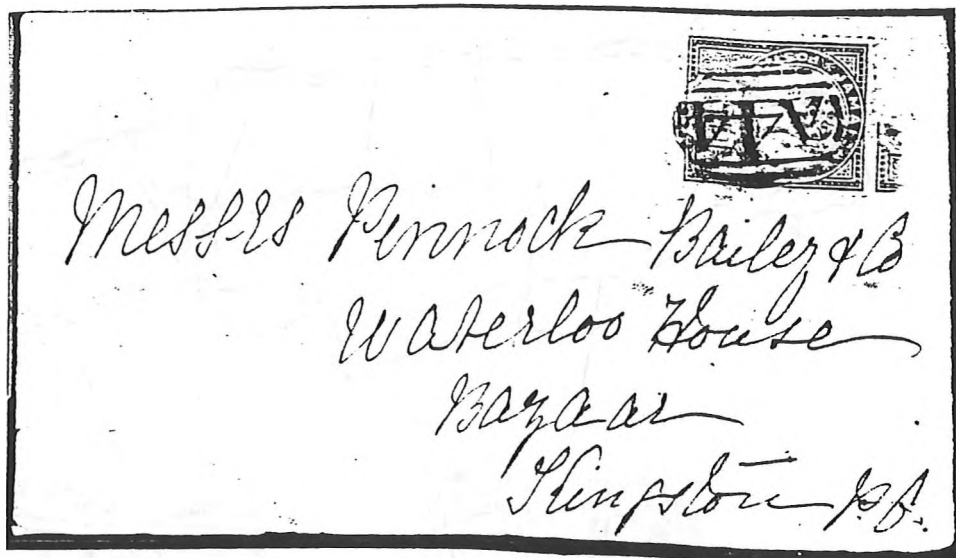 JAMAICA
Messrs Pennock Bailey & Co
Waterloo House
Bazaar
Kingston P.O.